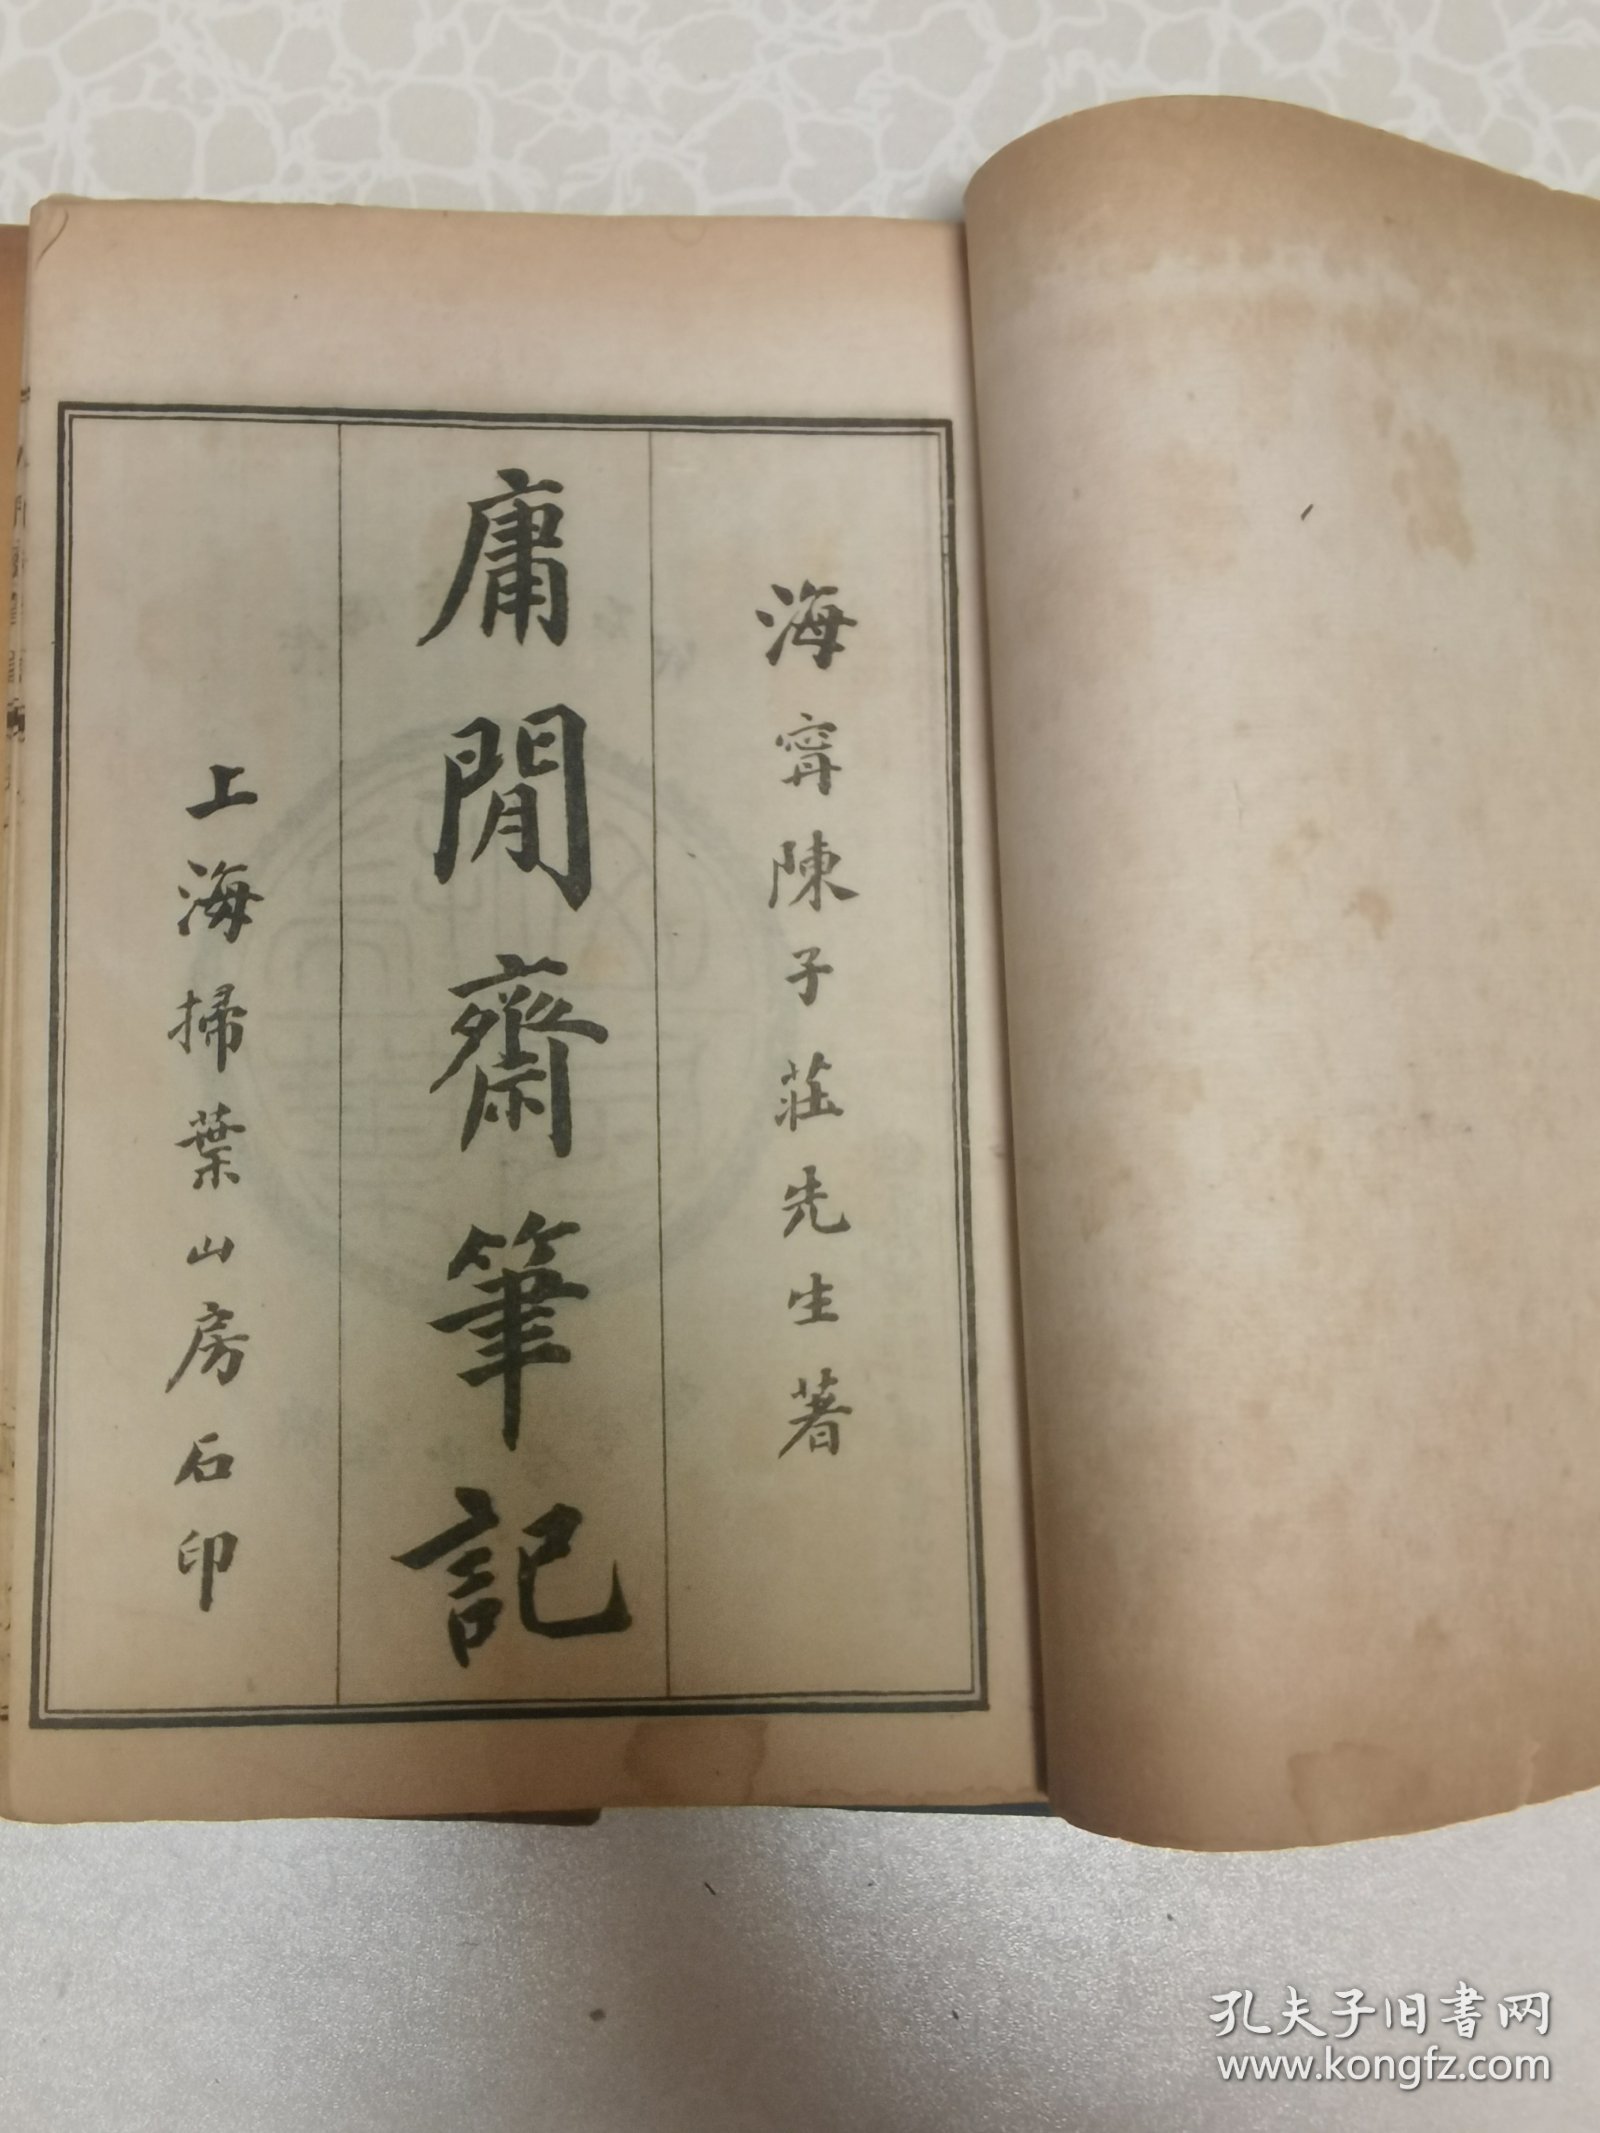 海甯陳子莊先生著
庸閒齋筆記
上海掃葉山房石印
孔夫子旧书网
www.kongfz.com